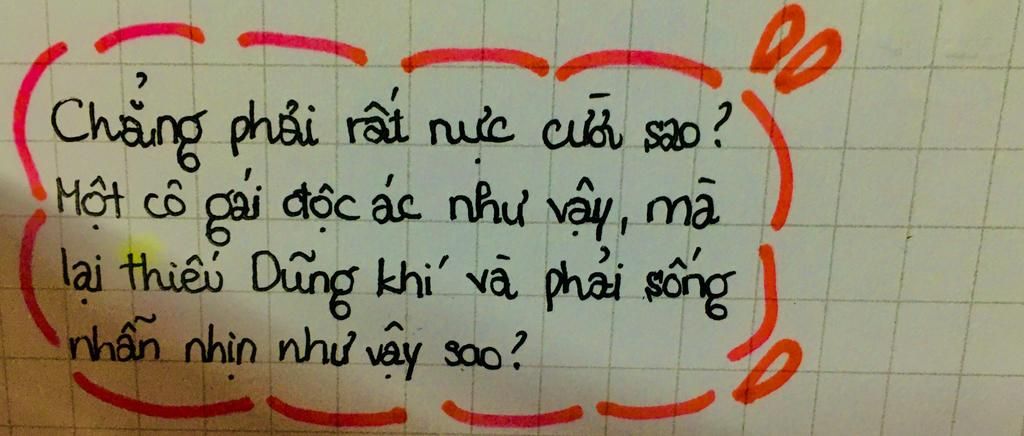 Chẳng phải rất nực cười sao?
Một cô gái độc ác như vậy, mà
lại thiếu Dũng khí và phải sống
nhẫn nhịn như vậy sao?